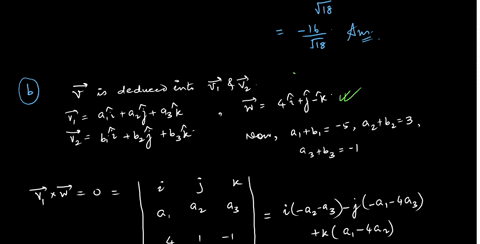 √18
= -16/√18 Ans.
(b) v⃗ is deduced into v⃗₁ & v⃗₂
v⃗₁ = a₁î + a₂ĵ + a₃k̂ , w⃗ = 4î + ĵ - k̂
v⃗₂ = b₁î + b₂ĵ + b₃k̂ Now, a₁+b₁ = -5, a₂+b₂ = 3,
a₃+b₃ = -1
v⃗₁ × w⃗ = 0 = | i j k |
| a₁ a₂ a₃ | = i(-a₂-a₃) - j(-a₁-4a₃)
| 4 1 -1 | + k(a₁-4a₂)